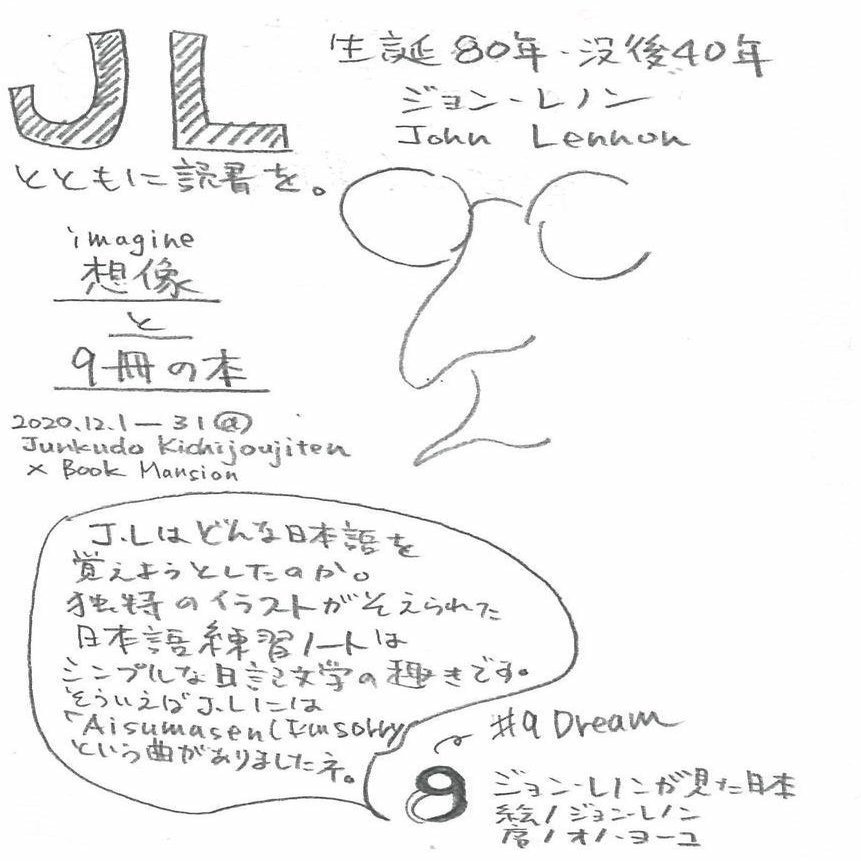 JL
とともに読書を。
生誕80年・没後40年
ジョン・レノン
John Lennon
imagine
想像
と
9冊の本
2020.12.1ー31@
Junkudo Kichijoujiten
× Book Mansion
J.Lはどんな日本語を
覚えようとしたのか。
独特のイラストがそえられた
日本語練習ノートは
シンプルな日記文学の趣きです。
そういえばJ.Lには
「Aisumasen(I'm sorry
という曲がありましたネ。
#9 Dream
9
ジョン・レノンが見た日本
絵/ジョン・レノン
序/オノ・ヨーコ